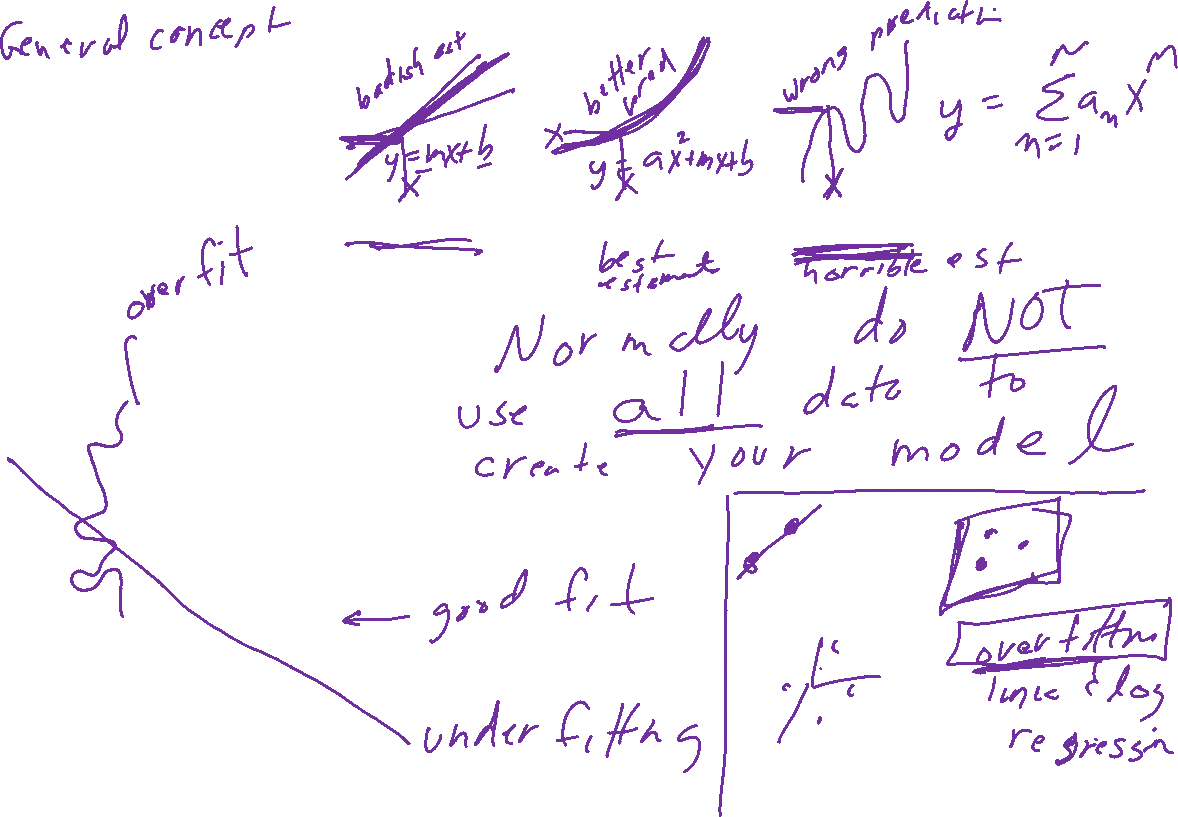 General concept
badish est
y = mx + b
X
better pred
X
y = ax²+mx+b
X
wrong predicti
X
y = Σ aₙ xⁿ
n=1
best
estemant
horrible est
over fit
Normally do NOT
use all data to
create your model
← good fit
under fitting
over fittn
& log
regressin